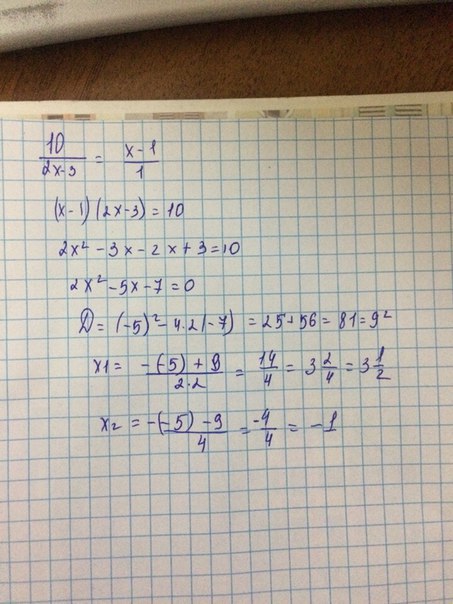 10/(2x-3) = (x-1)/1
(x-1)(2x-3)=10
2x²-3x-2x+3=10
2x²-5x-7=0
D=(-5)²-4·2(-7)=25+56=81=9²
x1=(-(-5)+9)/(2·2)=14/4=3 2/4=3 1/2
x₂=(-(-5)-9)/4=-4/4=-1